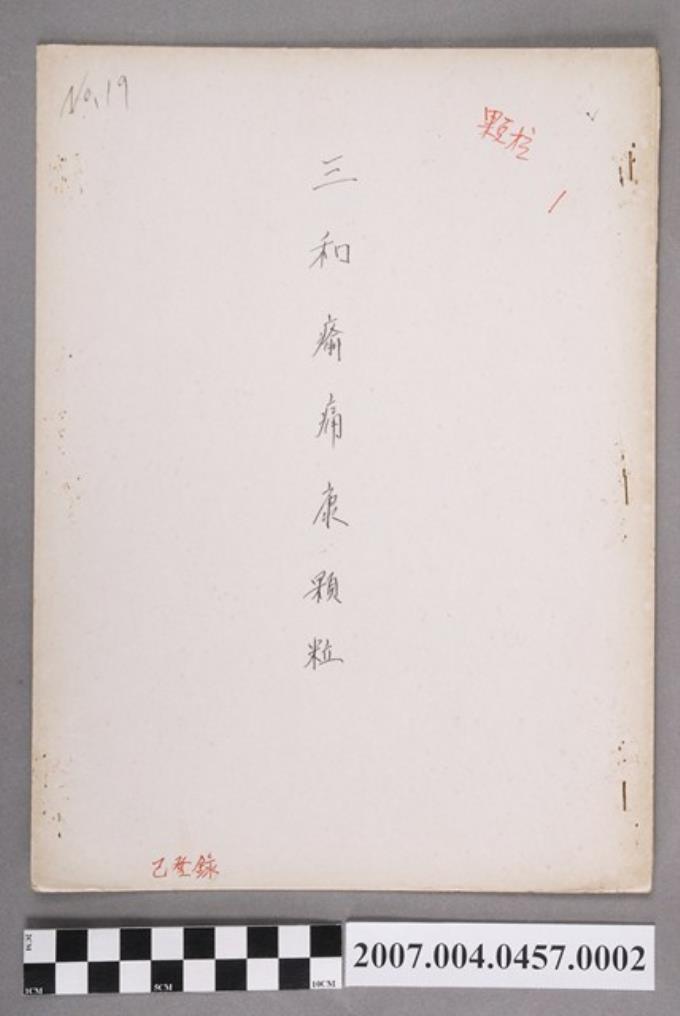 No.19
顆粒
1
三和瘉痛康顆粒
已登錄
2CM
1CM
5CM
10CM
2007.004.0457.0002